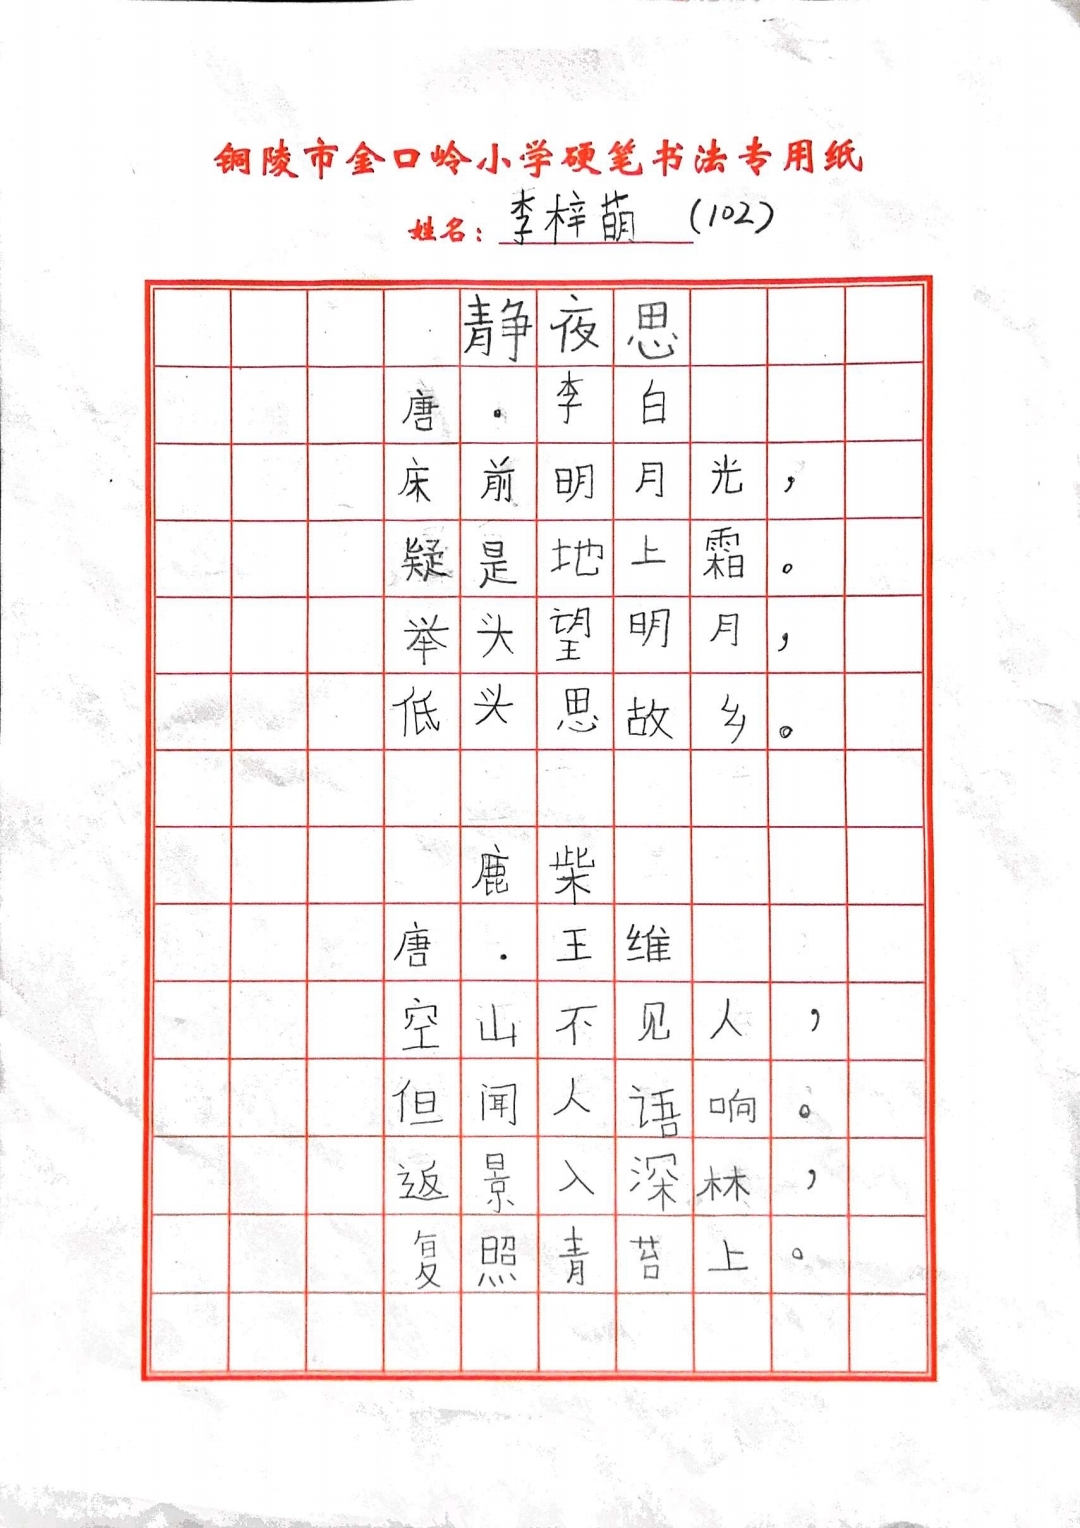 铜陵市金口岭小学硬笔书法专用纸
姓名：李梓萌（102）
静夜思
唐·李白
床前明月光，
疑是地上霜。
举头望明月，
低头思故乡。
鹿柴
唐·王维
空山不见人，
但闻人语响。
返景入深林，
复照青苔上。